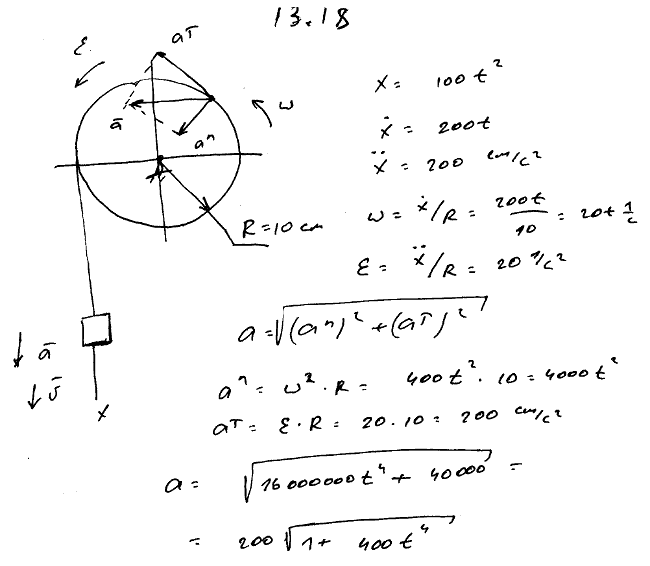 13.18
ε
aᵀ
ω
ā
aⁿ
R = 10 cm
ā
v̄
x
x = 100t²
ẋ = 200t
ẍ = 200 cm/c²
ω = ẋ/R = 200t/10 = 20t 1/c
ε = ẍ/R = 20 1/c²
a = √((aⁿ)² + (aᵀ)²)
aⁿ = ω² · R = 400t² · 10 = 4000t²
aᵀ = ε · R = 20 · 10 = 200 cm/c²
a = √(16000000t⁴ + 40000) =
= 200√(1 + 400t⁴)